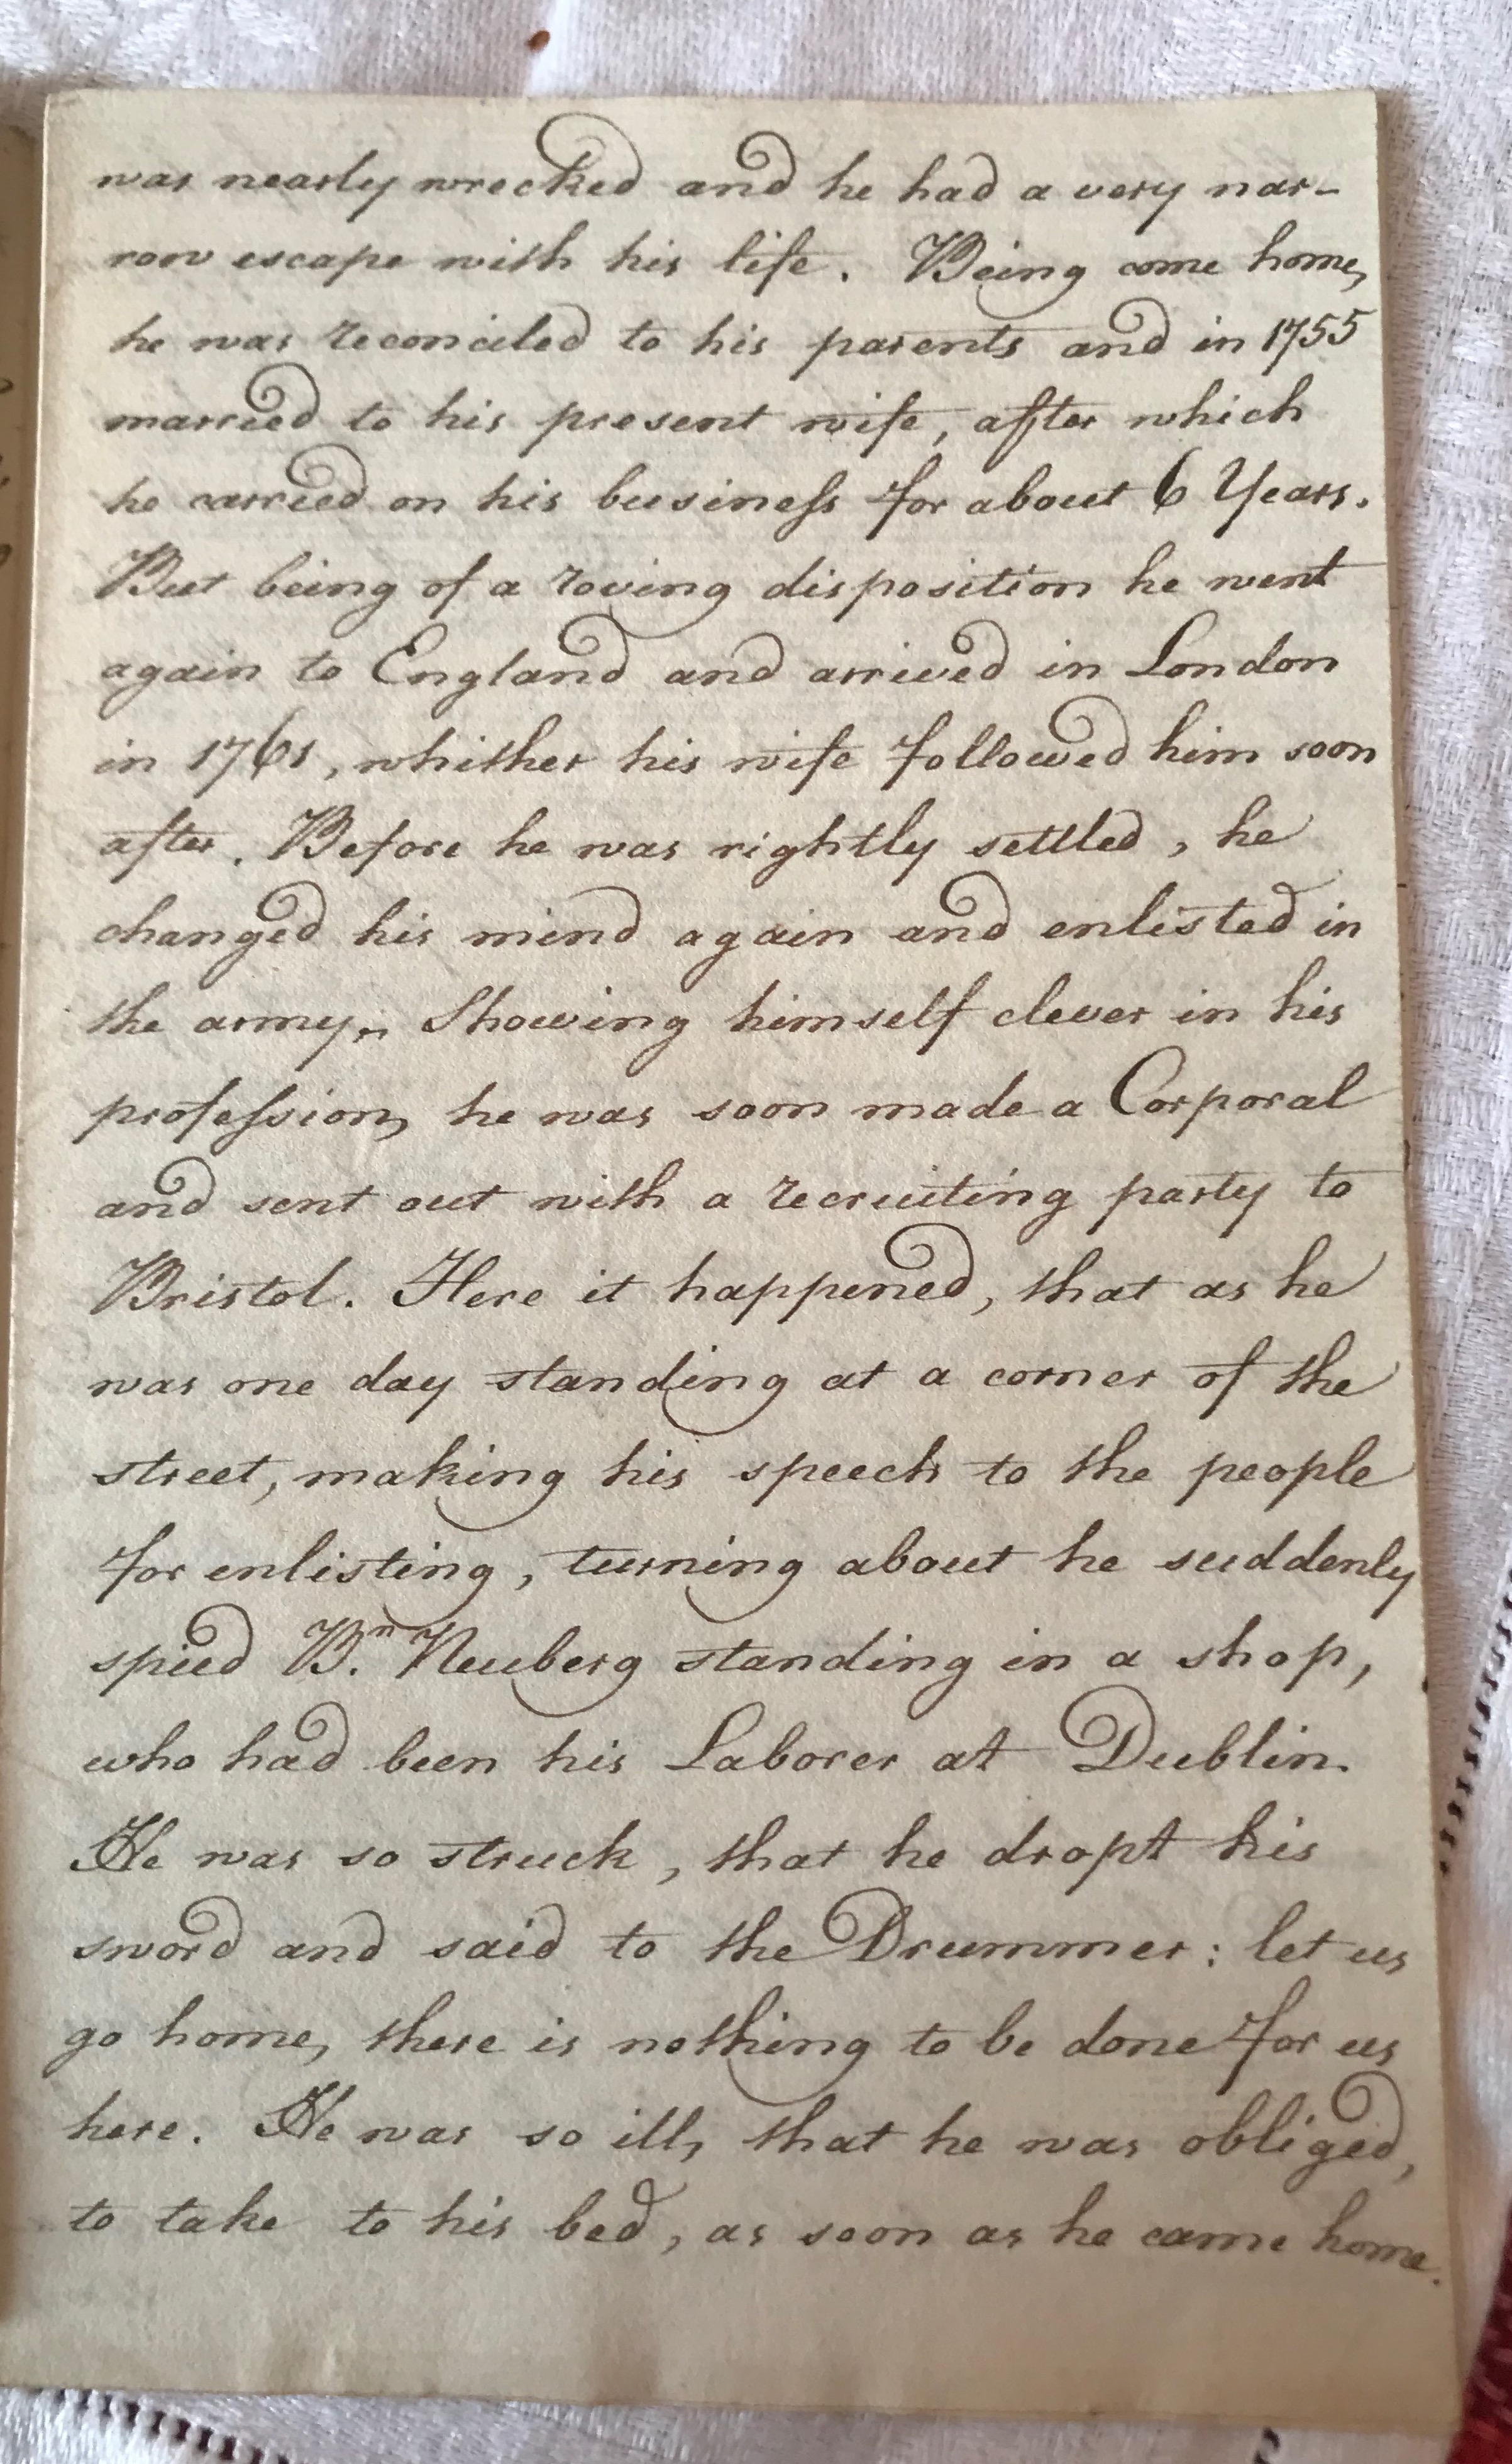 was nearly wrecked and he had a very nar-
row escape with his life. Being come home,
he was reconciled to his parents and in 1755
married to his present wife, after which
he carried on his busineſs for about 6 Years.
But being of a roving disposition he went
again to England and arrived in London
in 1761, whither his wife followed him soon
after. Before he was rightly settled, he
changed his mind again and enlisted in
the army. Showing himself clever in his
profeſsion, he was soon made a Corporal
and sent out with a recruiting party to
Bristol. Here it happened, that as he
was one day standing at a corner of the
street, making his speech to the people
for enlisting, turning about he suddenly
spied Bⁿ. Neuberg standing in a shop,
who had been his Laborer at Dublin.
He was so struck, that he dropt his
sword and said to the Drummer: let us
go home, there is nothing to be done for us
here. He was so ill, that he was obliged,
to take to his bed, as soon as he came home.